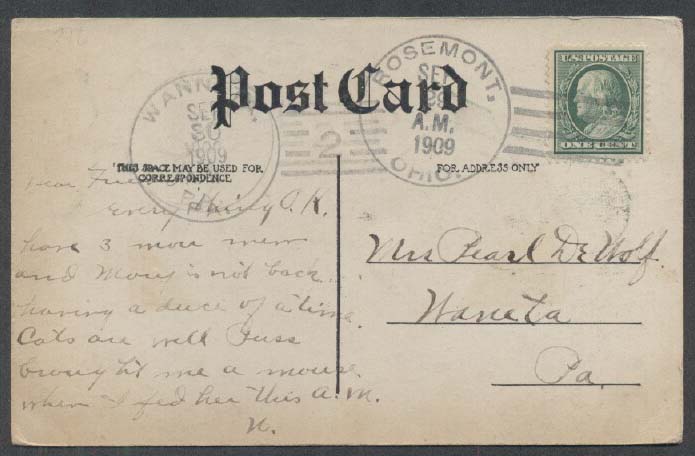 Post Card
ROSEMONT.
SEP
29
A.M.
1909
OHIO.
U.S. POSTAGE
ONE CENT
WANN
SEP
30
1909
PA
2
THIS SPACE MAY BE USED FOR
CORRESPONDENCE
FOR ADDRESS ONLY
Dear Friend
Everything O.K.
have 3 more men
and Mary is not back
having a duce of a time.
Cats are well Puss
brought me a mouse
when I fed her this A.M.
N.
Mrs Pearl DeWolf.
Waneta
Pa.